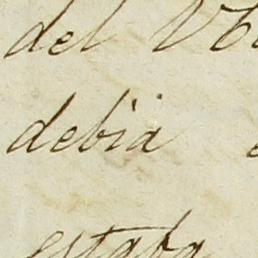 del
debia
estaba